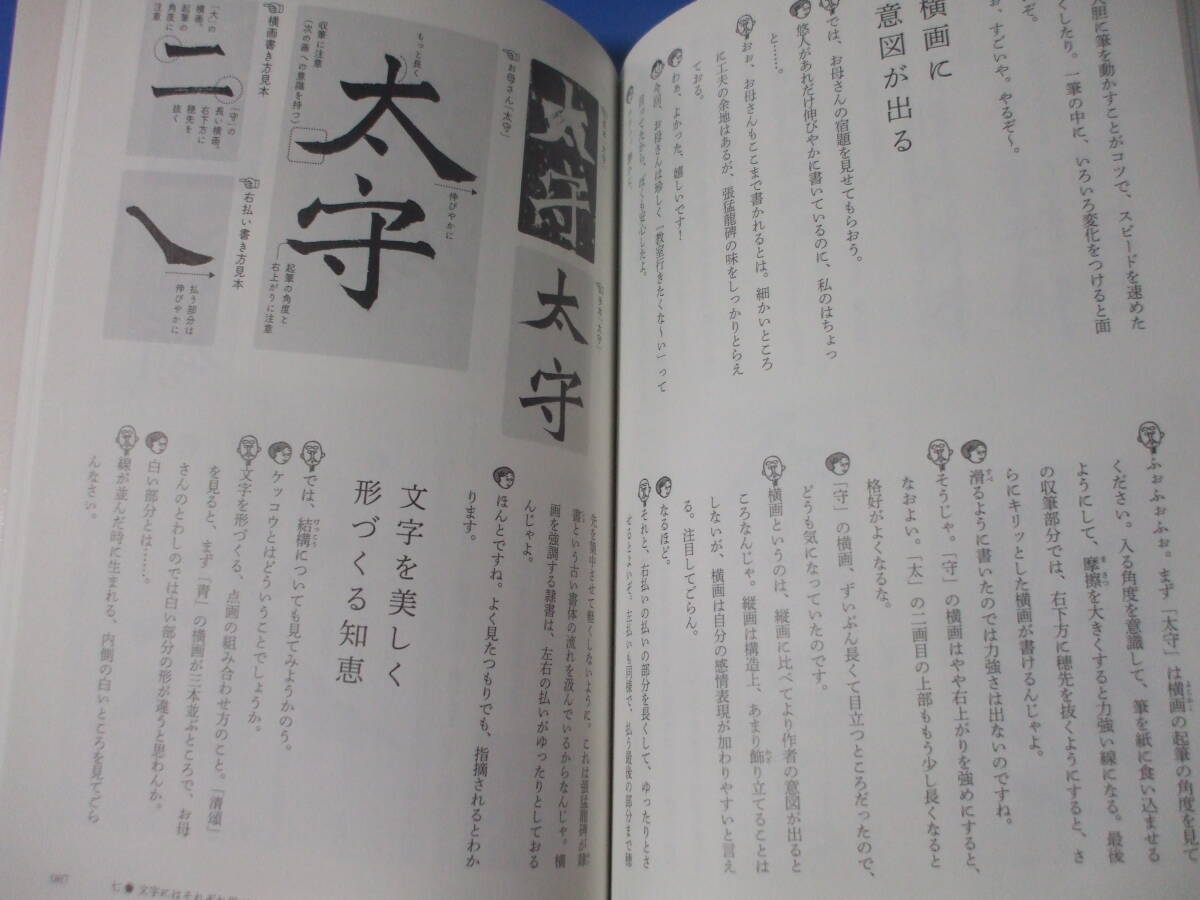 人胆に筆を動かすことがコツで、スピードを速めた
くしたり。一筆の中に、いろいろ変化をつけると面
ぞ。
お。すごいや。やるぞ〜。
横画に
意図が出る
では、お母さんの宿題を見せてもらおう。
悠人があれだけ伸びやかに書いているのに、私のはちょっ
と……。
おぉ、お母さんもここまで書かれるとは。細かいところ
に工夫の余地はあるが、張猛龍碑の味をしっかりとらえ
ておる。
わぁ、よかった、嬉しいです！
今回、お母さんは珍しく「教室行きたくな〜い」って
ふぉふぉふぉ。まず「太守」は横画の起筆の角度を見て
ください。入る角度を意識して、筆を紙に食い込ませる
ようにして、摩擦を大きくすると力強い線になる。最後
の収筆部分では、右下方に穂先を抜くようにすると、さ
らにキリッとした横画が書けるんじゃよ。
滑るように書いたのでは力強さは出ないのですね。
そうじゃ。「守」の横画はやや右上がりを強めにすると、
なおよい。「太」の二画目の上部ももう少し長くなると
格好がよくなるな。
「守」の横画、ずいぶん長くて目立つところだったので、
どうも気になっていたのです。
横画というのは、縦画に比べてより作者の意図が出ると
ころなんじゃ。縦画は構造上、あまり飾り立てることは
しないが、横画は自分の感情表現が加わりやすいと言え
る。注目してごらん。
なるほど。
それと、右払いの払いの部分を長くして、ゆったりとさ
せるとよいぞ。左払いも同様で、払う最後の部分まで穂
太守
太守
お母さん「太守」
もっと長く
太守
収筆に注意
（次の画への意識を持つ）
伸びやかに
起筆の角度と
右上がりに注意
横画書き方見本
「大」の
横画、
起筆の
角度に
注意
二
「守」の
長い横画、
右下方に
穂先を
抜く
右払い書き方見本
払う部分は
伸びやかに
先を集中させて軽くしないように。これは張猛龍碑が隷
書という古い書体の流れを汲んでいるからなんじゃ。横
画を強調する隷書は、左右の払いがゆったりとしておる
んじゃよ。
ほんとですね。よく見たつもりでも、指摘されるとわか
ります。
文字を美しく
形づくる知恵
では、結構についても見てみようかのう。
ケッコウとはどういうことでしょうか。
文字を形づくる、点画の組み合わせ方のこと。「清頌」
を見ると、まず「青」の横画が三本並ぶところで、お母
さんのとわしのでは白い部分の形が違うと思わんか。
白い部分とは……。
線が並んだ時に生まれる、内側の白いところを見てごら
んなさい。
087